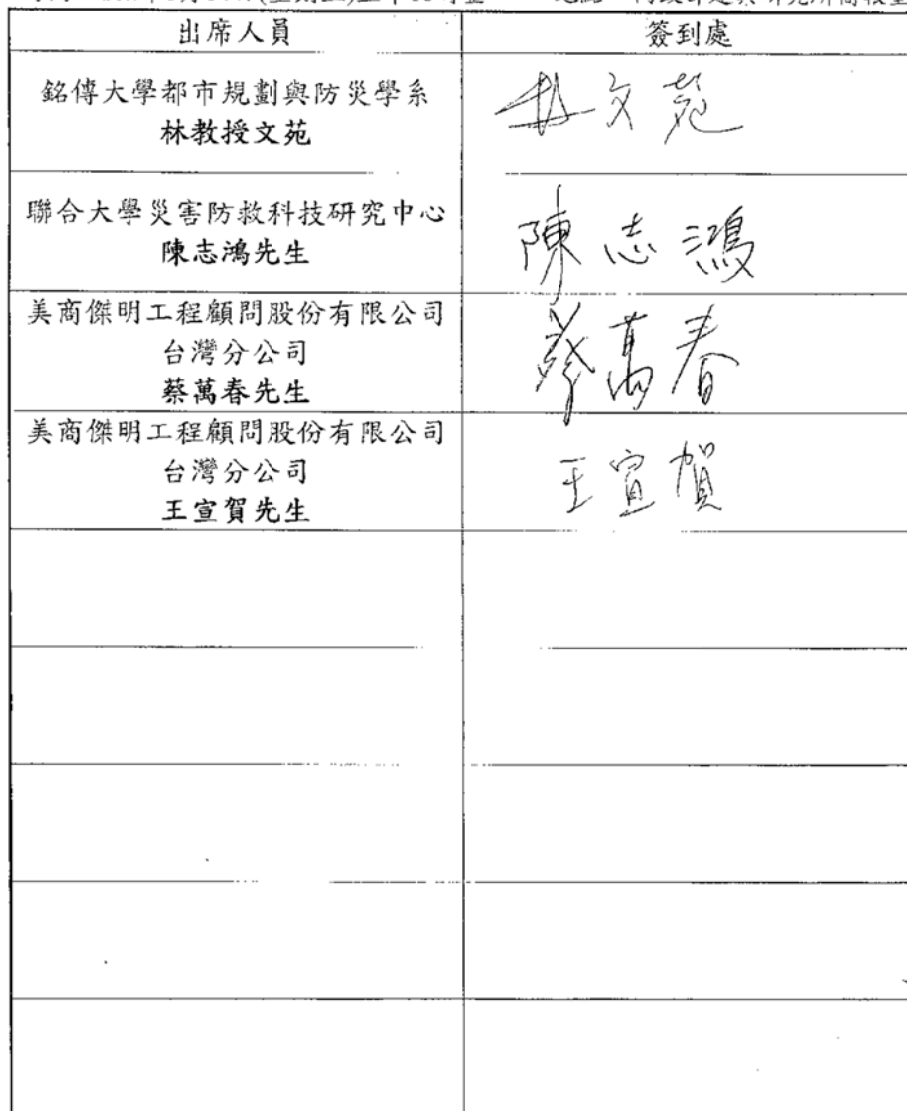 出席人員
簽到處
銘傳大學都市規劃與防災學系
林教授文苑
林文苑
聯合大學災害防救科技研究中心
陳志鴻先生
陳志鴻
美商傑明工程顧問股份有限公司
台灣分公司
蔡萬春先生
蔡萬春
美商傑明工程顧問股份有限公司
台灣分公司
王宣賀先生
王宣賀